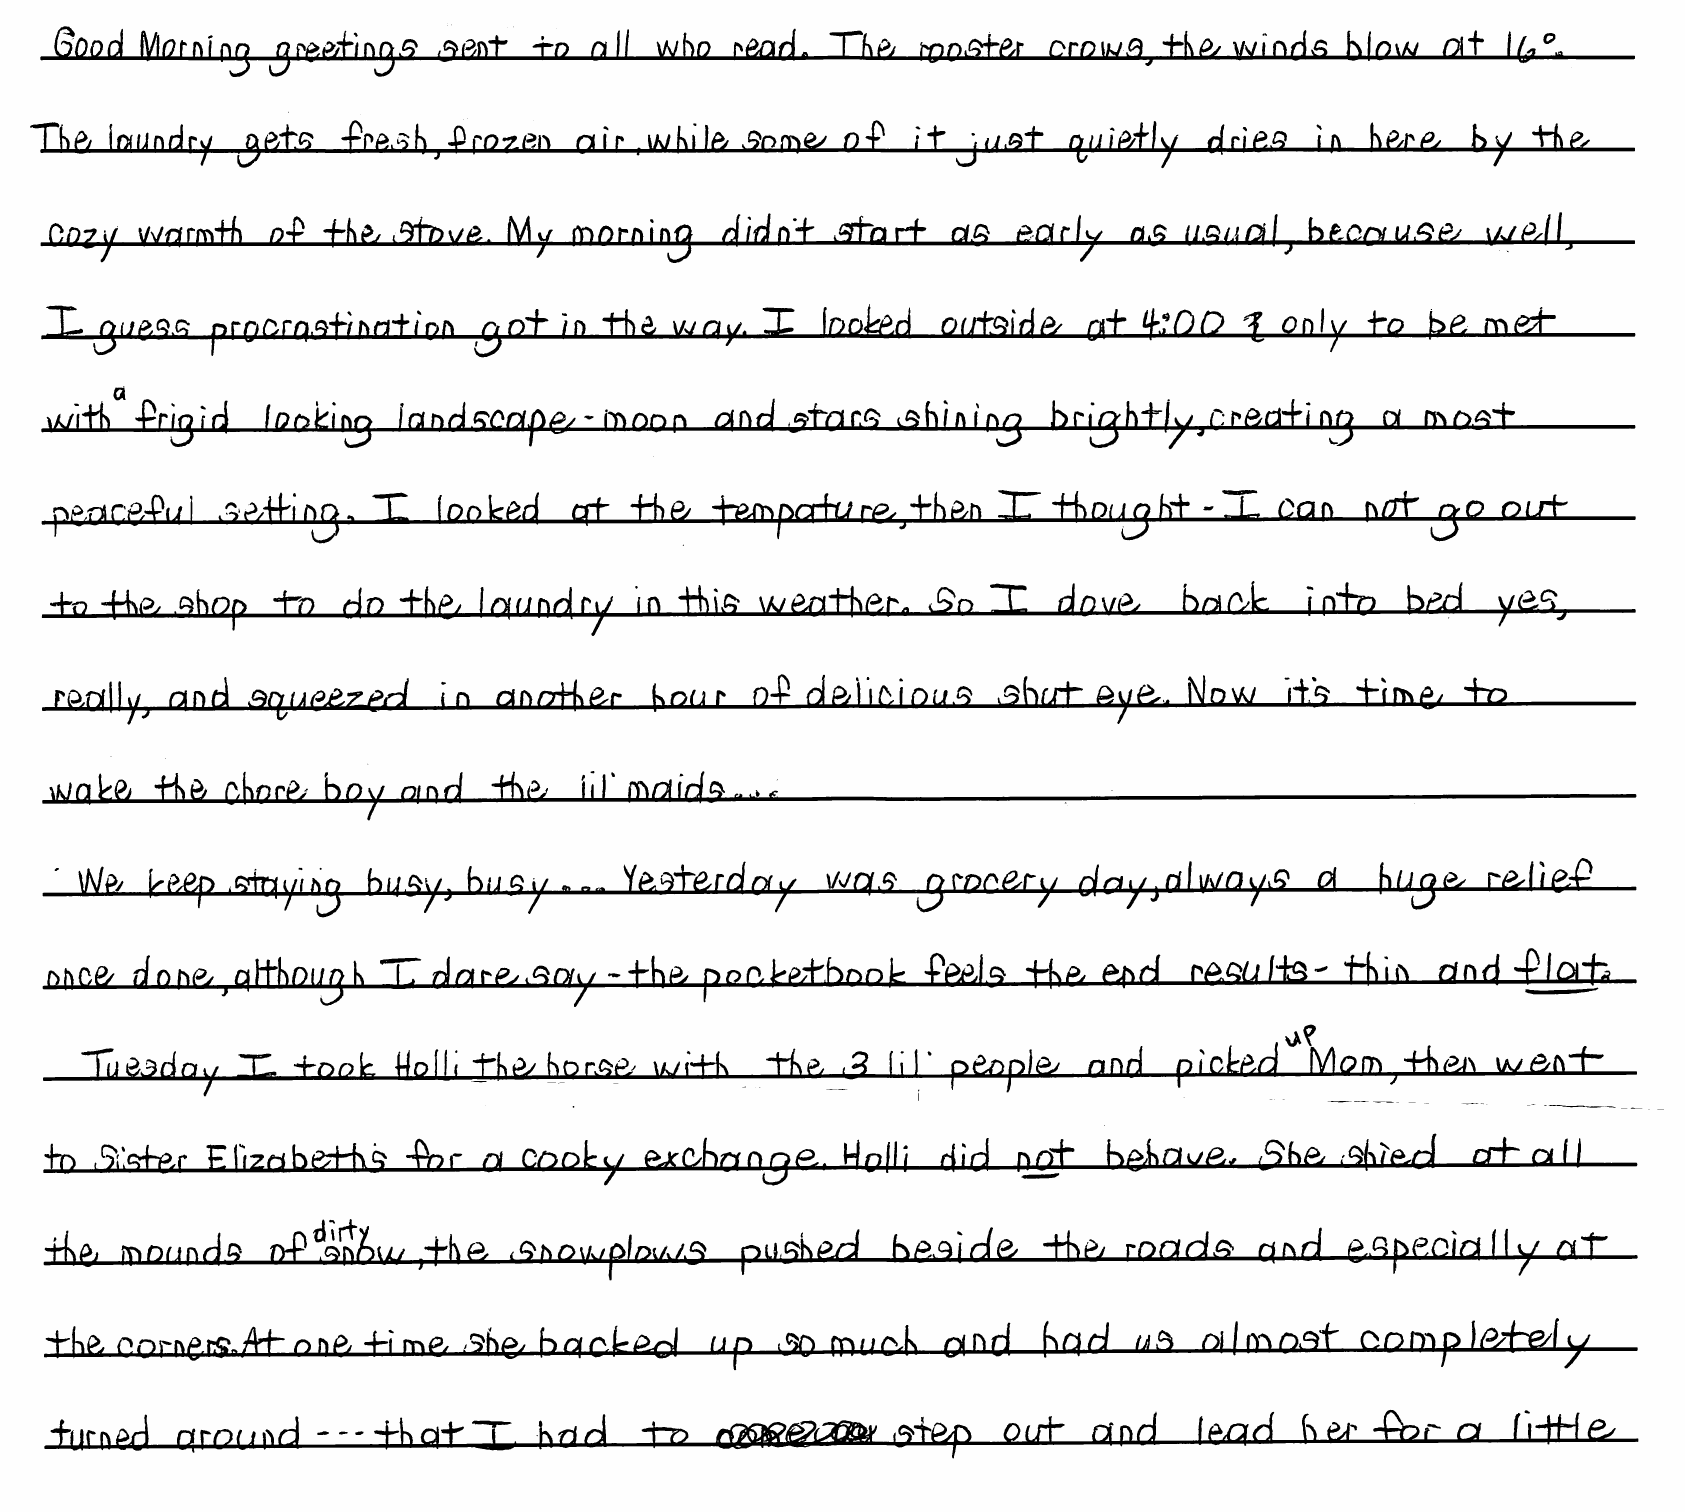 Good Morning greetings sent to all who read. The rooster crows, the winds blow at 16°.
The laundry gets fresh, frozen air, while some of it just quietly dries in here by the
cozy warmth of the stove. My morning didn't start as early as usual, because well,
I guess procrastination got in the way. I looked outside at 4:00 & only to be met
with a frigid looking landscape - moon and stars shining brightly, creating a most
peaceful setting. I looked at the tempature, then I thought - I can not go out
to the shop to do the laundry in this weather. So I dove back into bed yes,
really, and squeezed in another hour of delicious shut eye. Now it's time to
wake the chore boy and the lil' maids...
We keep staying busy, busy.... Yesterday was grocery day, always a huge relief
once done, although I dare say - the pocketbook feels the end results - thin and flat.
Tuesday I took Holli the horse with the 3 lil' people and picked up Mom, then went
to Sister Elizabeth's for a cooky exchange. Holli did not behave. She shied at all
the mounds of dirty snow, the snowplows pushed beside the roads and especially at
the corners. At one time she backed up so much and had us almost completely
turned around --- that I had to step out and lead her for a little